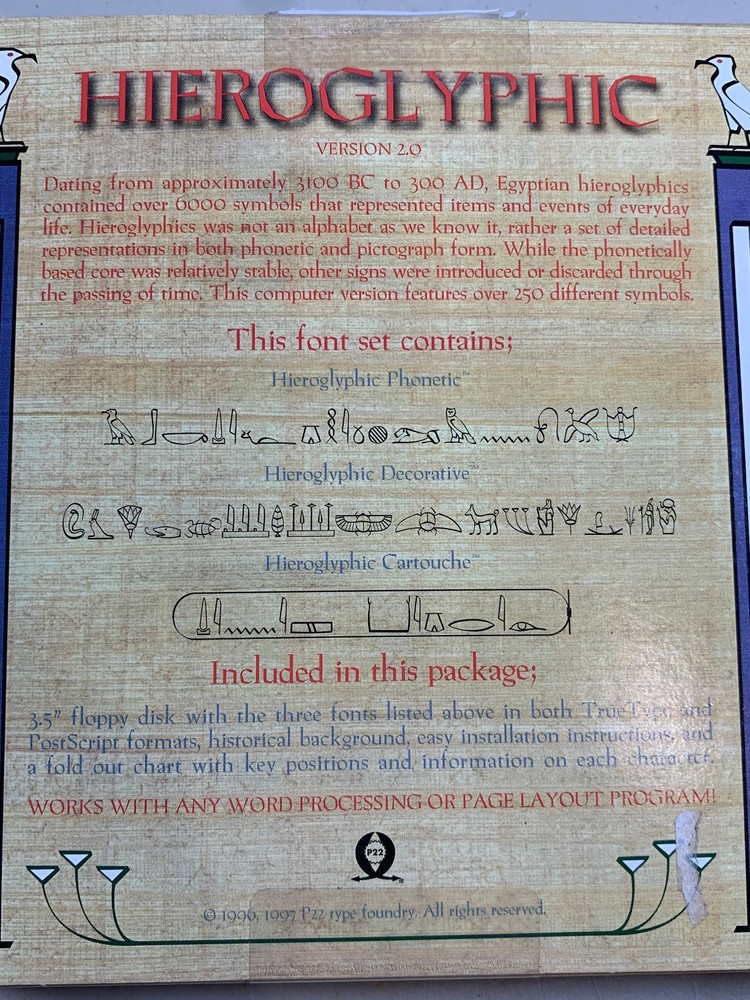 HIEROGLYPHIC
VERSION 2.0
Dating from approximately 3100 BC to 300 AD, Egyptian hieroglyphics
contained over 6000 symbols that represented items and events of everyday
life. Hieroglyphics was not an alphabet as we know it, rather a set of detailed
representations in both phonetic and pictograph form. While the phonetically
based core was relatively stable, other signs were introduced or discarded through
the passing of time. This computer version features over 250 different symbols.
This font set contains;
Hieroglyphic Phonetic™
Hieroglyphic Decorative™
Hieroglyphic Cartouche™
Included in this package;
3.5" floppy disk with the three fonts listed above in both TrueType and
PostScript formats, historical background, easy installation instructions, and
a fold out chart with key positions and information on each character.
WORKS WITH ANY WORD PROCESSING OR PAGE LAYOUT PROGRAM!
P22
© 1996, 1997 P22 type foundry. All rights reserved.